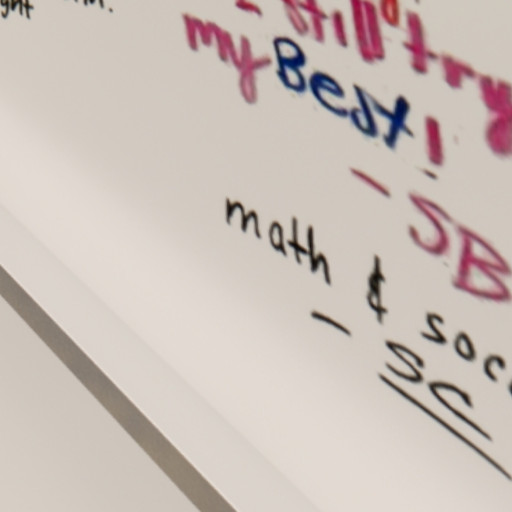 - still try
my Best!
- SB
math & soc
- SC